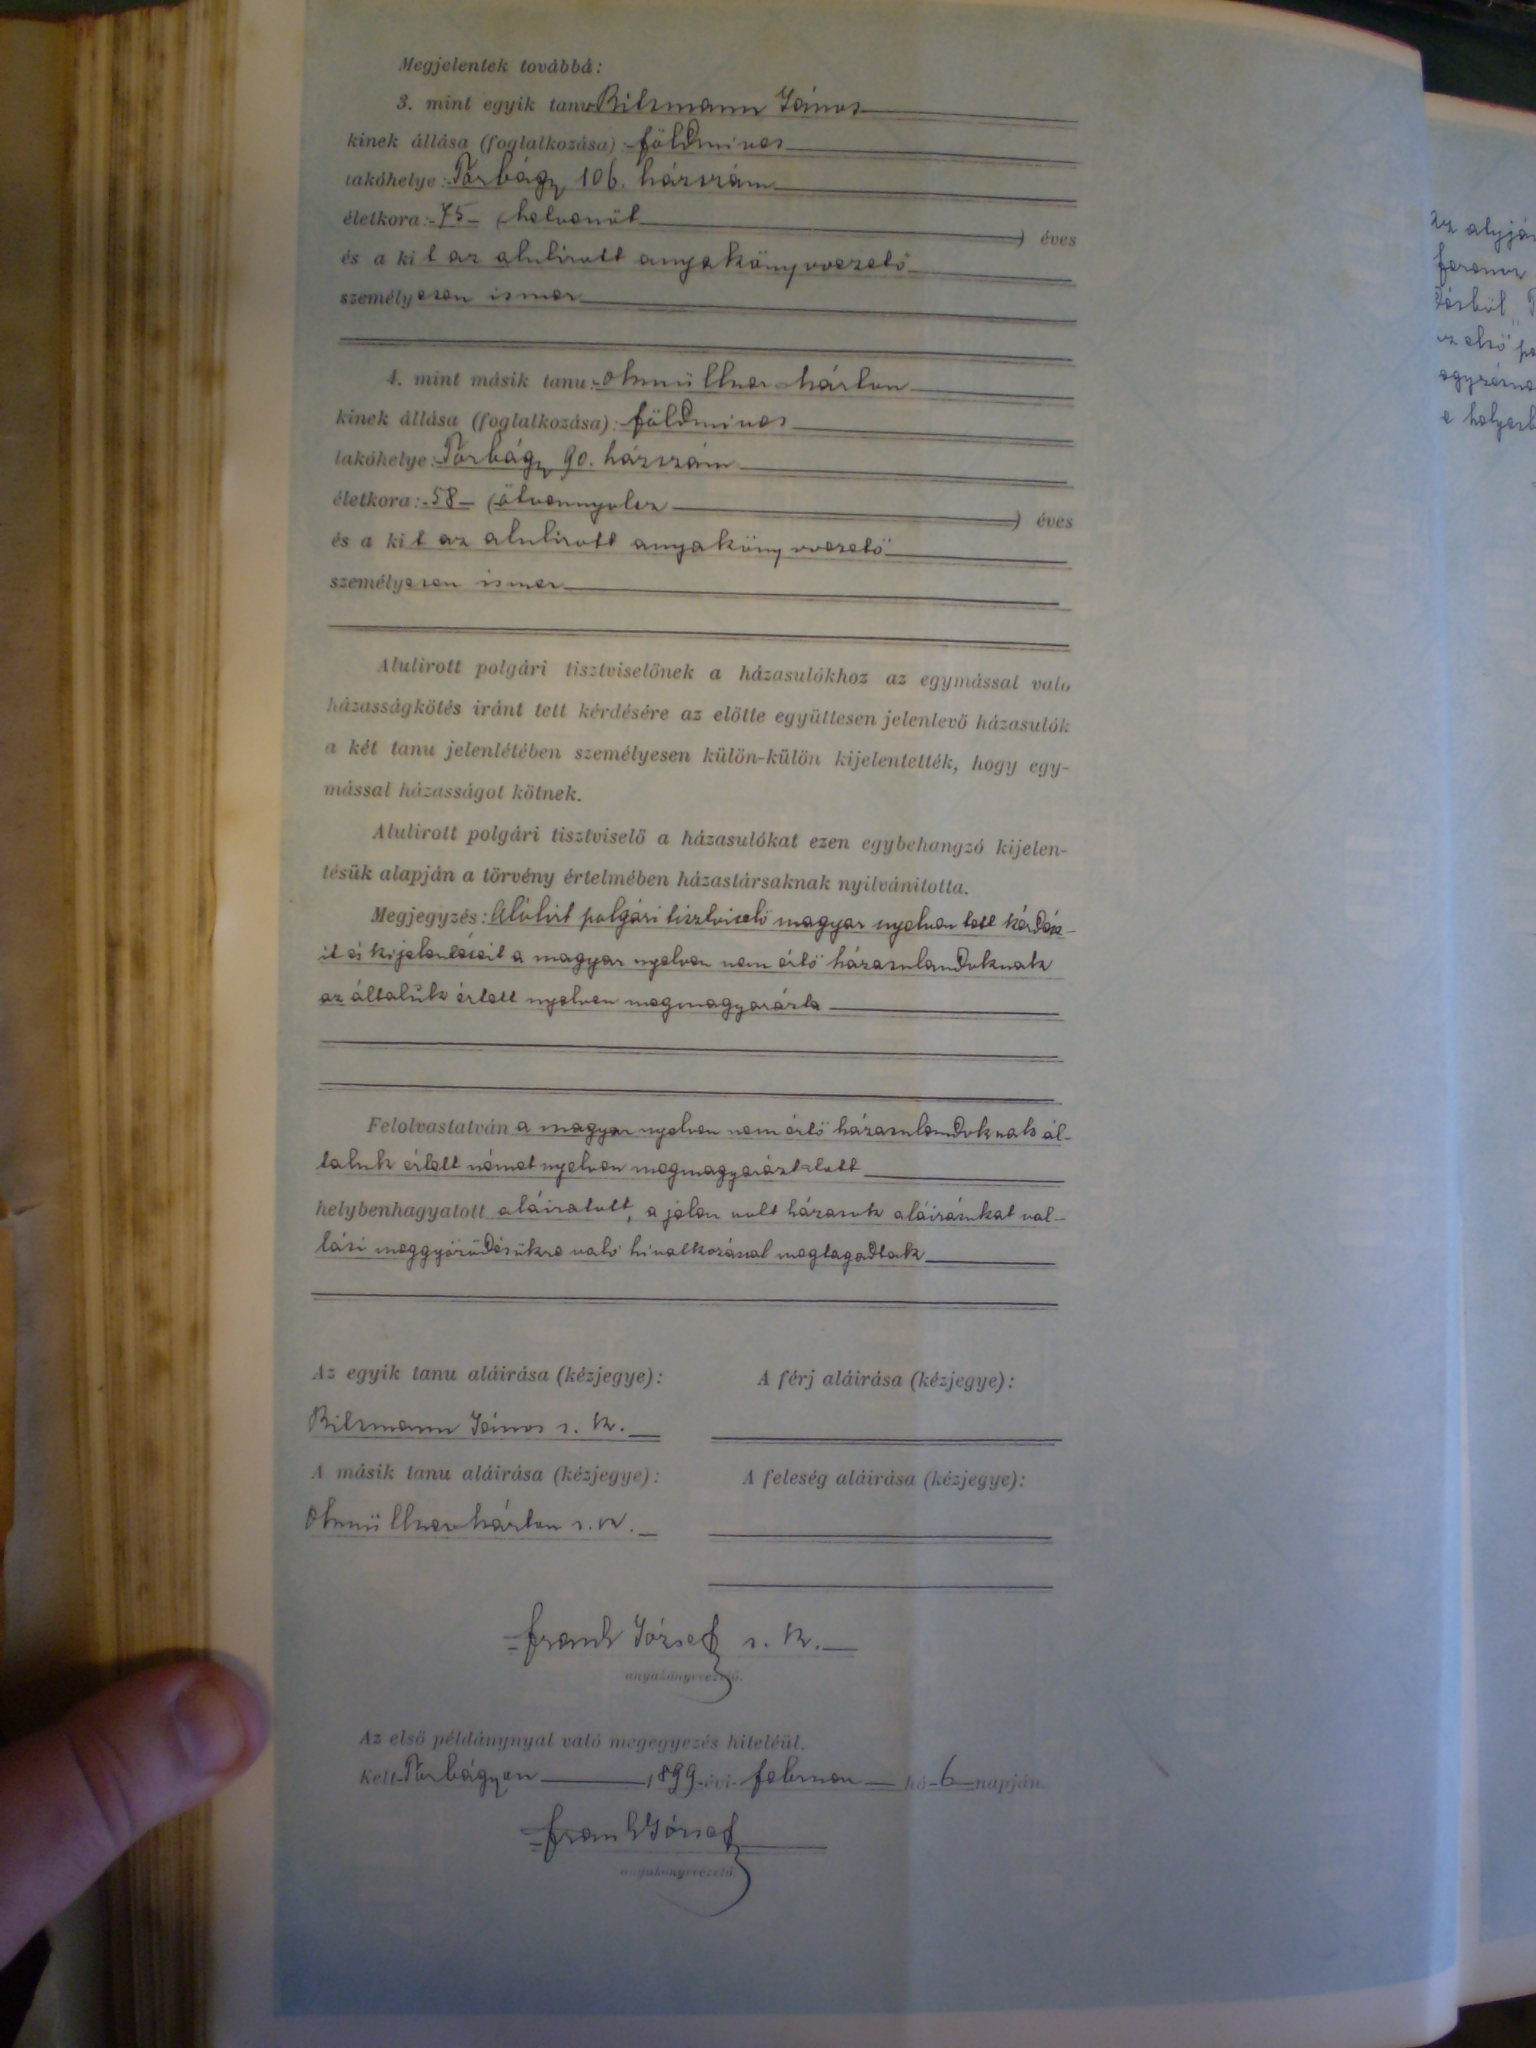 Megjelentek továbbá:
3. mint egyik tanu Bilzmann János
kinek állása (foglalkozása): földmives
lakóhelye: Torbágy 106. házszám
életkora: 75 (hetvenöt) éves
és a kit az alulirott anyakönyvvezető
személyesen ismer
4. mint másik tanu: Ohmüllner Márton
kinek állása (foglalkozása): földmives
lakóhelye: Torbágy 90. házszám
életkora: 58 (ötvennyolcz) éves
és a kit az alulirott anyakönyvvezető
személyesen ismer
Alulirott polgári tisztviselőnek a házasulókhoz az egymással való
házasságkötés iránt tett kérdésére az előtte együttesen jelenlevő házasulók
a két tanu jelenlétében személyesen külön-külön kijelentették, hogy egy-
mással házasságot kötnek.
Alulirott polgári tisztviselő a házasulókat ezen egybehangzó kijelen-
tésük alapján a törvény értelmében házastársaknak nyilvánitotta.
Megjegyzés: Alólirt polgári tisztviselő magyar nyelven tett kérdése-
it és kijelentéseit a magyar nyelven nem értő házasulandoknak
az általuk értett nyelven megmagyarázta
Felolvastatván a magyar nyelven nem értő házasulandoknak ál-
taluk értett német nyelven megmagyaráztatott
helybenhagyatott aláiratott, a jelen volt házasok aláirásukat val-
lási meggyőződésükre való hivatkozással megtagadtak
Az egyik tanu aláirása (kézjegye): A férj aláirása (kézjegye):
Bilzmann János s. k.
A másik tanu aláirása (kézjegye): A feleség aláirása (kézjegye):
Ohmüllner Márton s. k.
Frank József s. k.
anyakönyvvezető.
Az első példánynyal való megegyezés hiteléül.
Kelt Torbágyon 1899 évi február hó 6 napján.
Frank József
anyakönyvvezető.